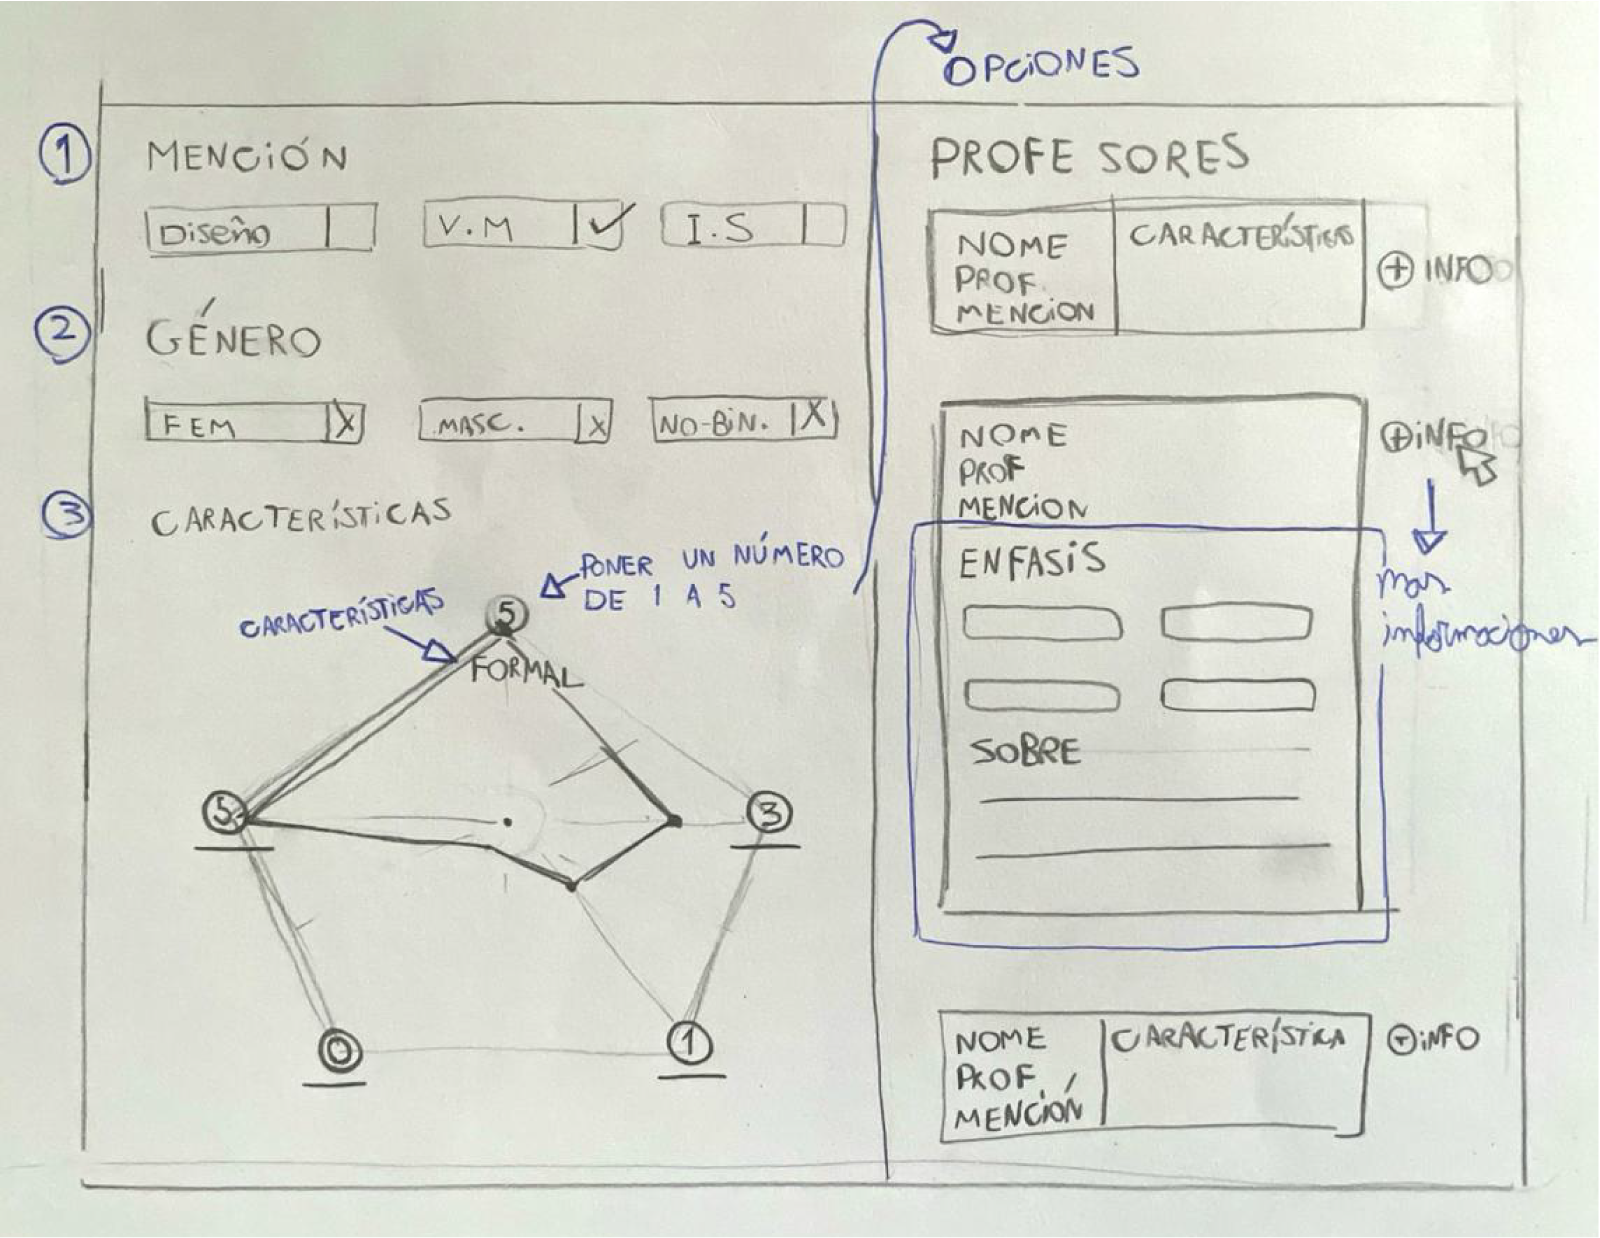 OPCIONES
1 MENCIÓN
Diseño
V.M
I.S
2 GÉNERO
FEM X
MASC. X
NO-BIN. X
3 CARACTERÍSTICAS
PONER UN NÚMERO
DE 1 A 5
CARACTERÍSTICAS
5
FORMAL
5
3
0
1
PROFESORES
NOME
PROF.
MENCION
CARACTERÍSTICAS
+ INFO
NOME
PROF
MENCION
+ INFO
mas
informaciones
ENFASIS
SOBRE
NOME
PROF.
MENCIÓN
CARACTERÍSTICA
+ INFO